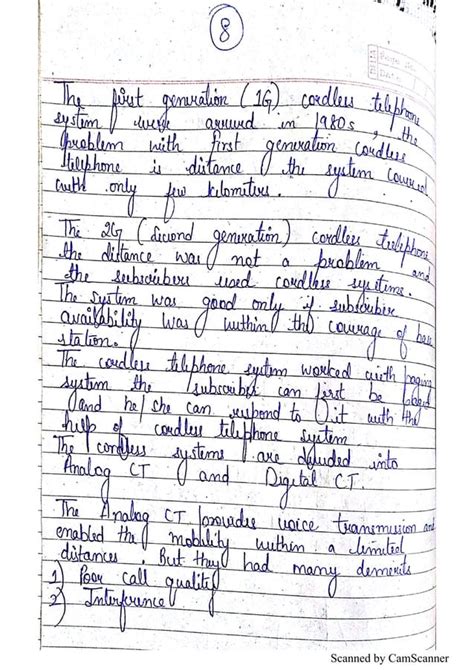 8
The first generation (1G) cordless telephone
system were arrived in 1980s, the
problem with first generation cordless
telephone is distance the system covered
with only few kilometers.
The 2G (second generation) cordless telephone
the distance was not a problem and
the subscribers used cordless systems.
The system was good only if subscriber
availability was within the courage of base
station.
The cordless telephone system worked with paging
system the subscriber can first be paged
and he/she can respond to it with the
help of cordless telephone system.
The cordless systems are devided into
Analog CT and Digital CT.
The Analog CT provides voice transmission and
enabled the mobility within a limited
distances. But they had many demerits
1) Poor call quality
2) Interference
Scanned by CamScanner